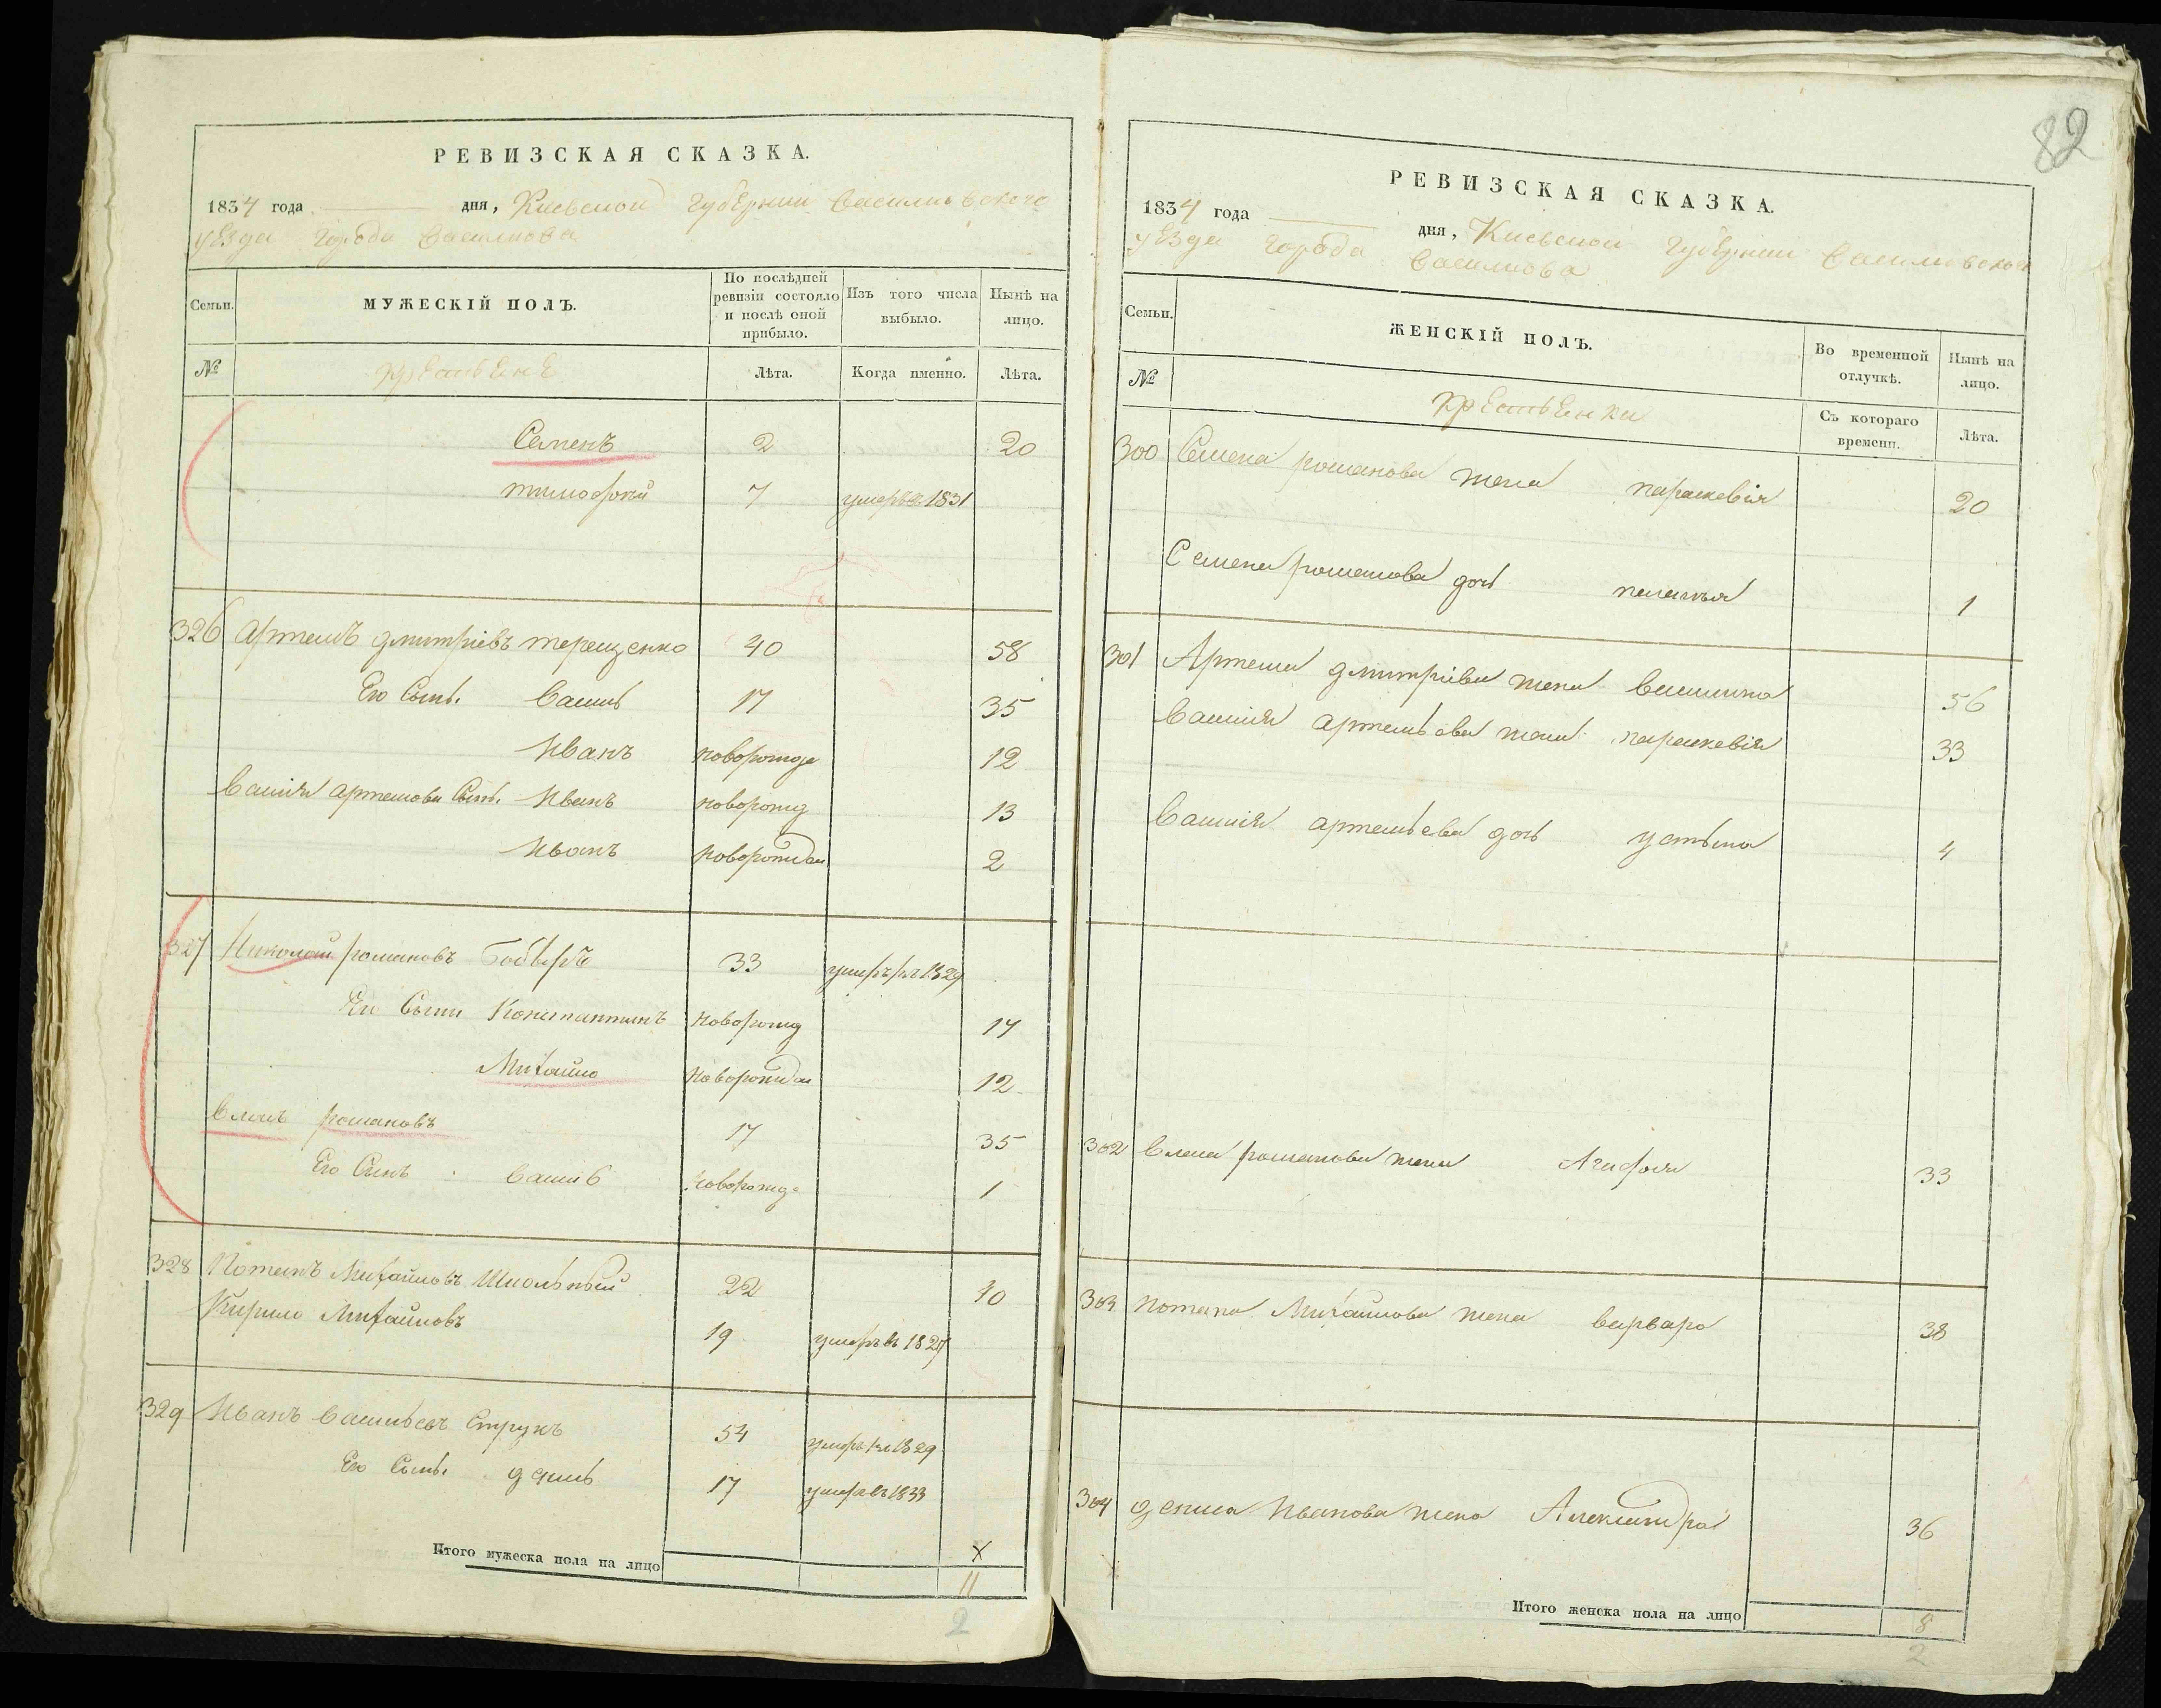 82
РЕВИЗСКАЯ СКАЗКА.
1834 года дня, Киевской Губернии Васильковского
уезда города Василкова
Семьи. МУЖЕСКІЙ ПОЛЪ. По послѣдней ревизіи состояло и послѣ оной прибыло. Изъ того числа выбыло. Нынѣ на лицо.
№ крестьяне Лѣта. Когда именно. Лѣта.
Семенъ 2 20
тимофей 7 умеръ 1831
326 Артемъ дмитріевъ терещенко 40 58
Его Сынъ. Василь 17 35
Иванъ новорожде 12
Василія артемова Сынъ. Иванъ новорожд 13
Иванъ новорожден 2
327 Николай романовъ 33 умеръ 1829
Его Сыны Константинъ новорожд 14
Михайло новорожден 12
Власъ романовъ 17 35
Его Синъ Василь новорожд 1
328 Потапъ Михайловъ Школьный 22 40
Кирило Михайловъ 19 умеръ въ 1827
329 Иванъ Васильевъ Струкъ 54 умеръ 1829
Его Сынъ. денисъ 17 умеръ въ 1833
Итого мужеска пола на лицо
11
2
РЕВИЗСКАЯ СКАЗКА.
1834 года дня, Киевской Губернии Васильковского
уезда города Василкова
Семьи. ЖЕНСКІЙ ПОЛЪ. Во временной отлучкѣ. Нынѣ на лицо.
№ крестьянки Съ котораго времени. Лѣта.
300 Семена романова жена параскевія 20
Семена романова дочь пелагея 1
301 Артема дмитріева жена василина 56
Василія артемьева жена параскевія 33
Василія артемьева дочь устына 4
302 Власа романова жена Агафия 33
303 потапа Михайлова жена варвара 38
304 дениса Иванова жена Александра 36
Итого женска пола на лицо 8
2